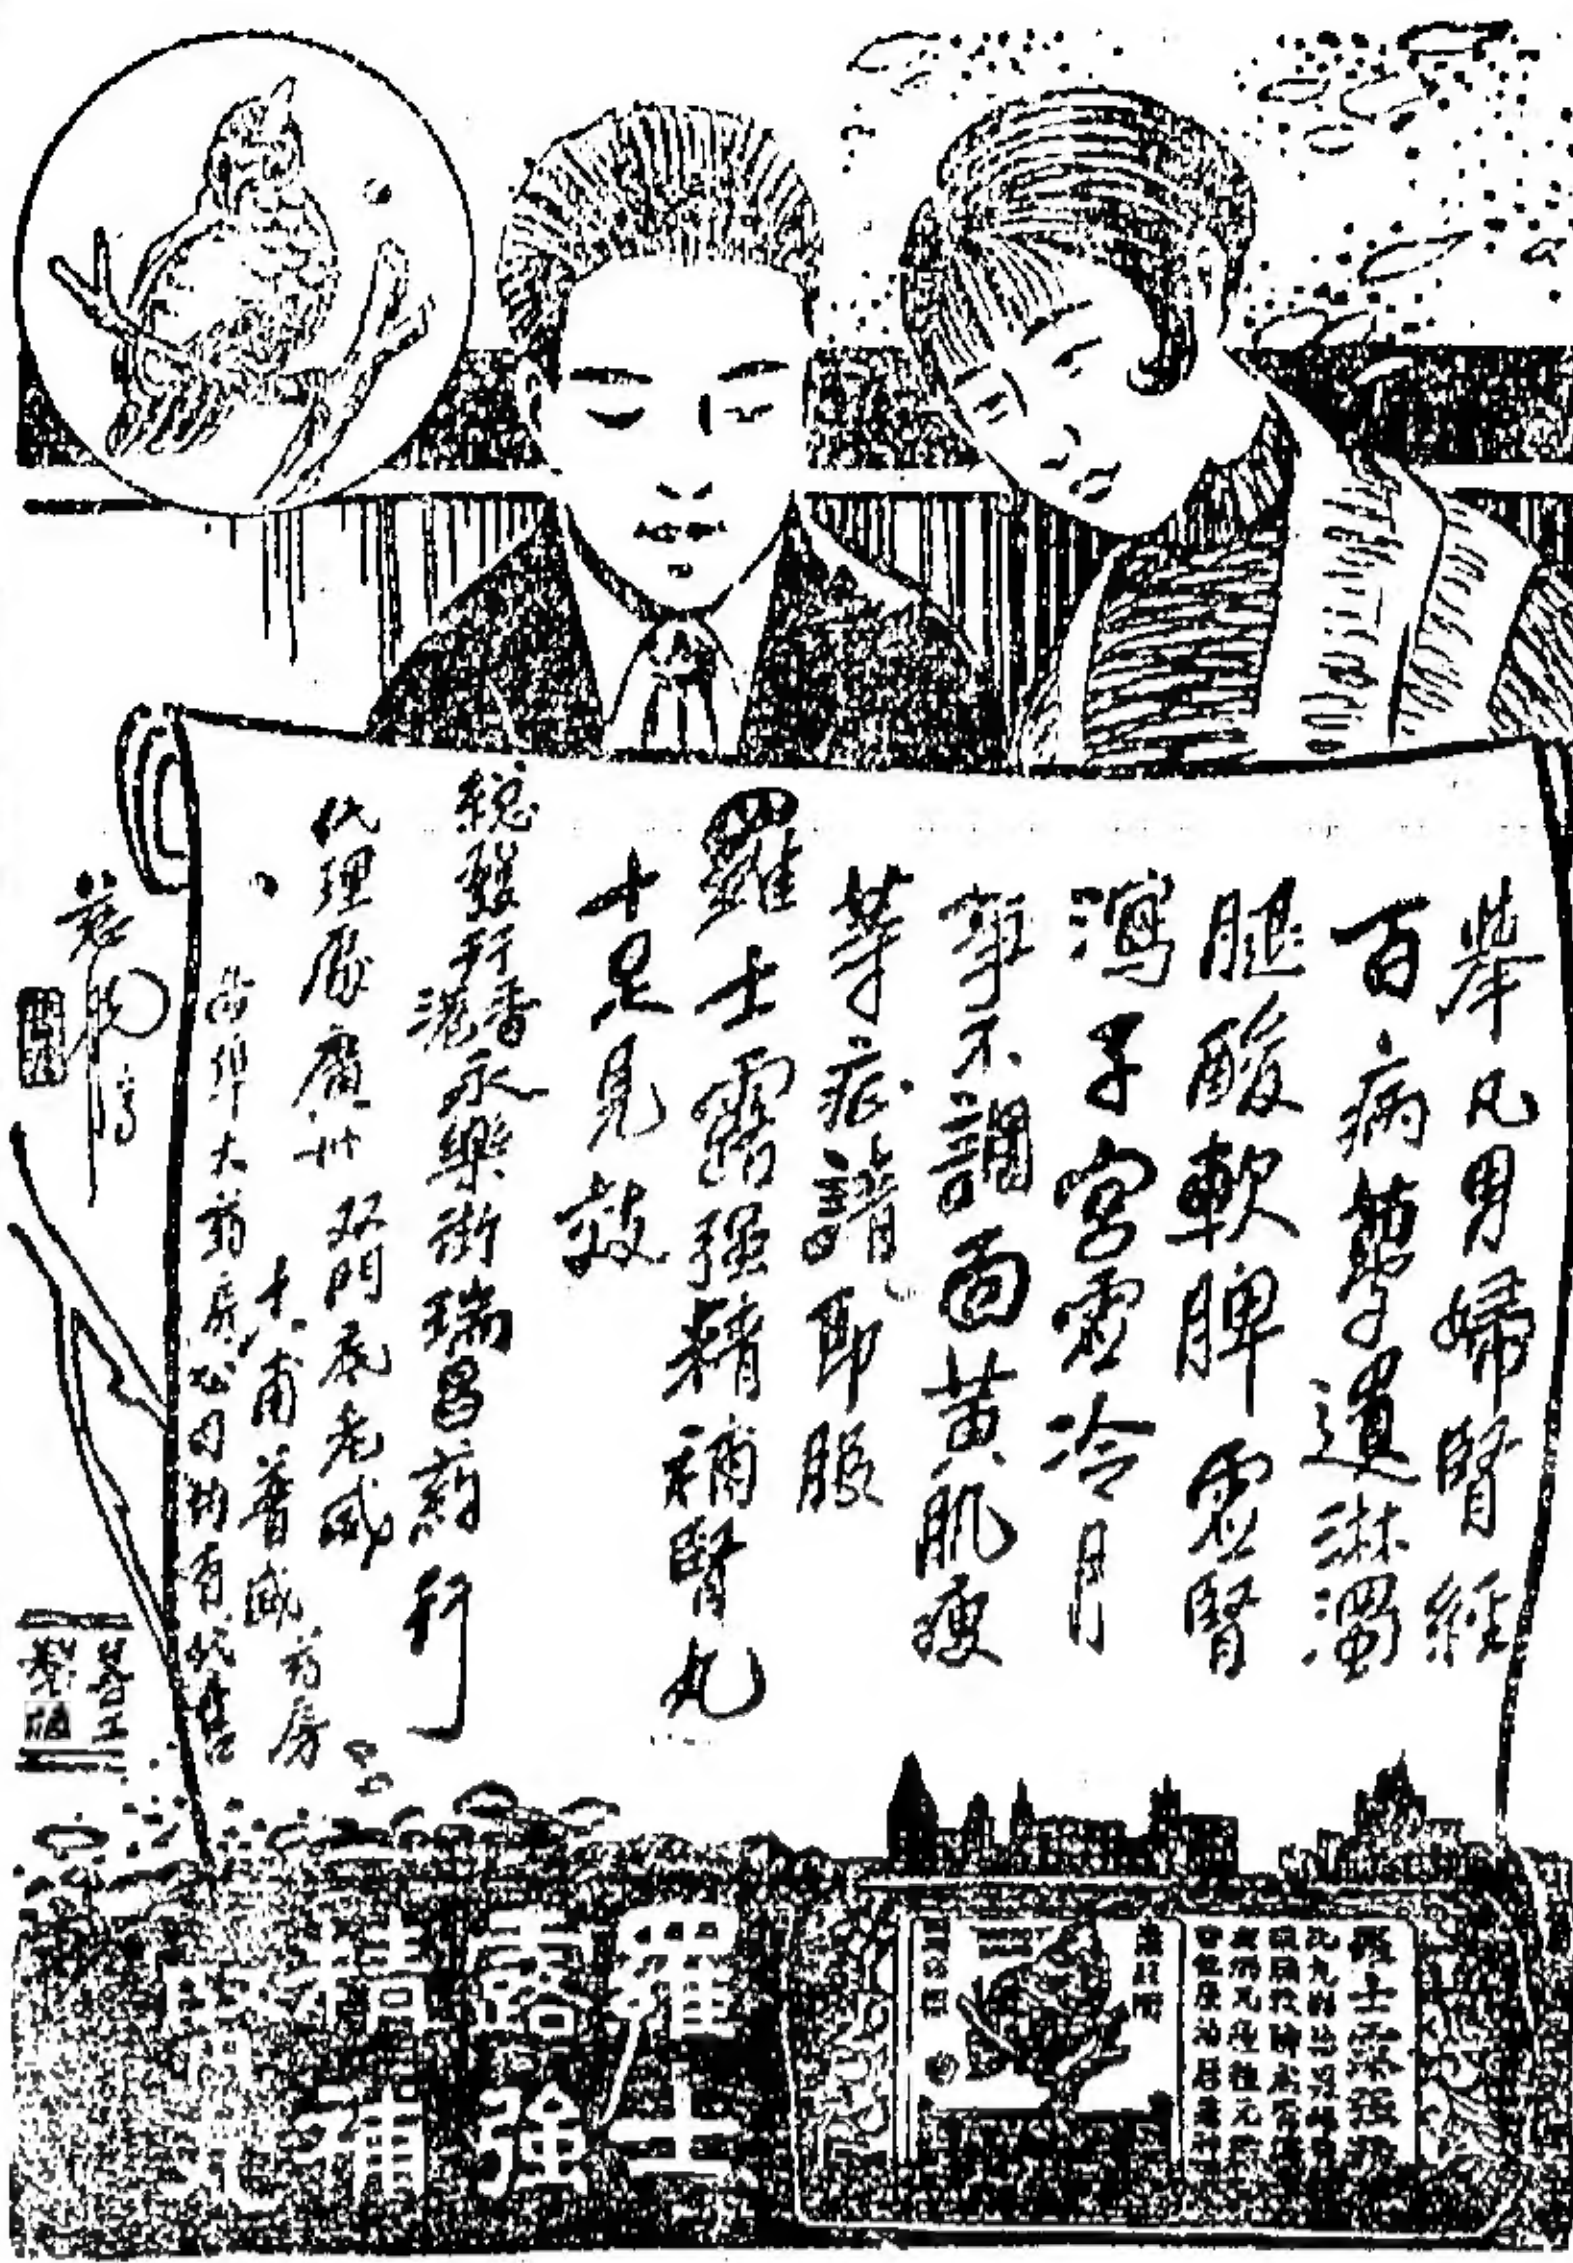 舉凡男婦腎經
百病夢遺淋濁
腿酸軟脾虛腎
瀉子宮虛冷月
事不調面黃肌瘦
等症請即服
羅士露强精補腎丸
十足見效
總發行香港永樂街瑞昌葯行
代理處廣州双門底老威
十八甫普威葯房
各埠大葯房公司均有代售
羅士
露強
精補
腎丸